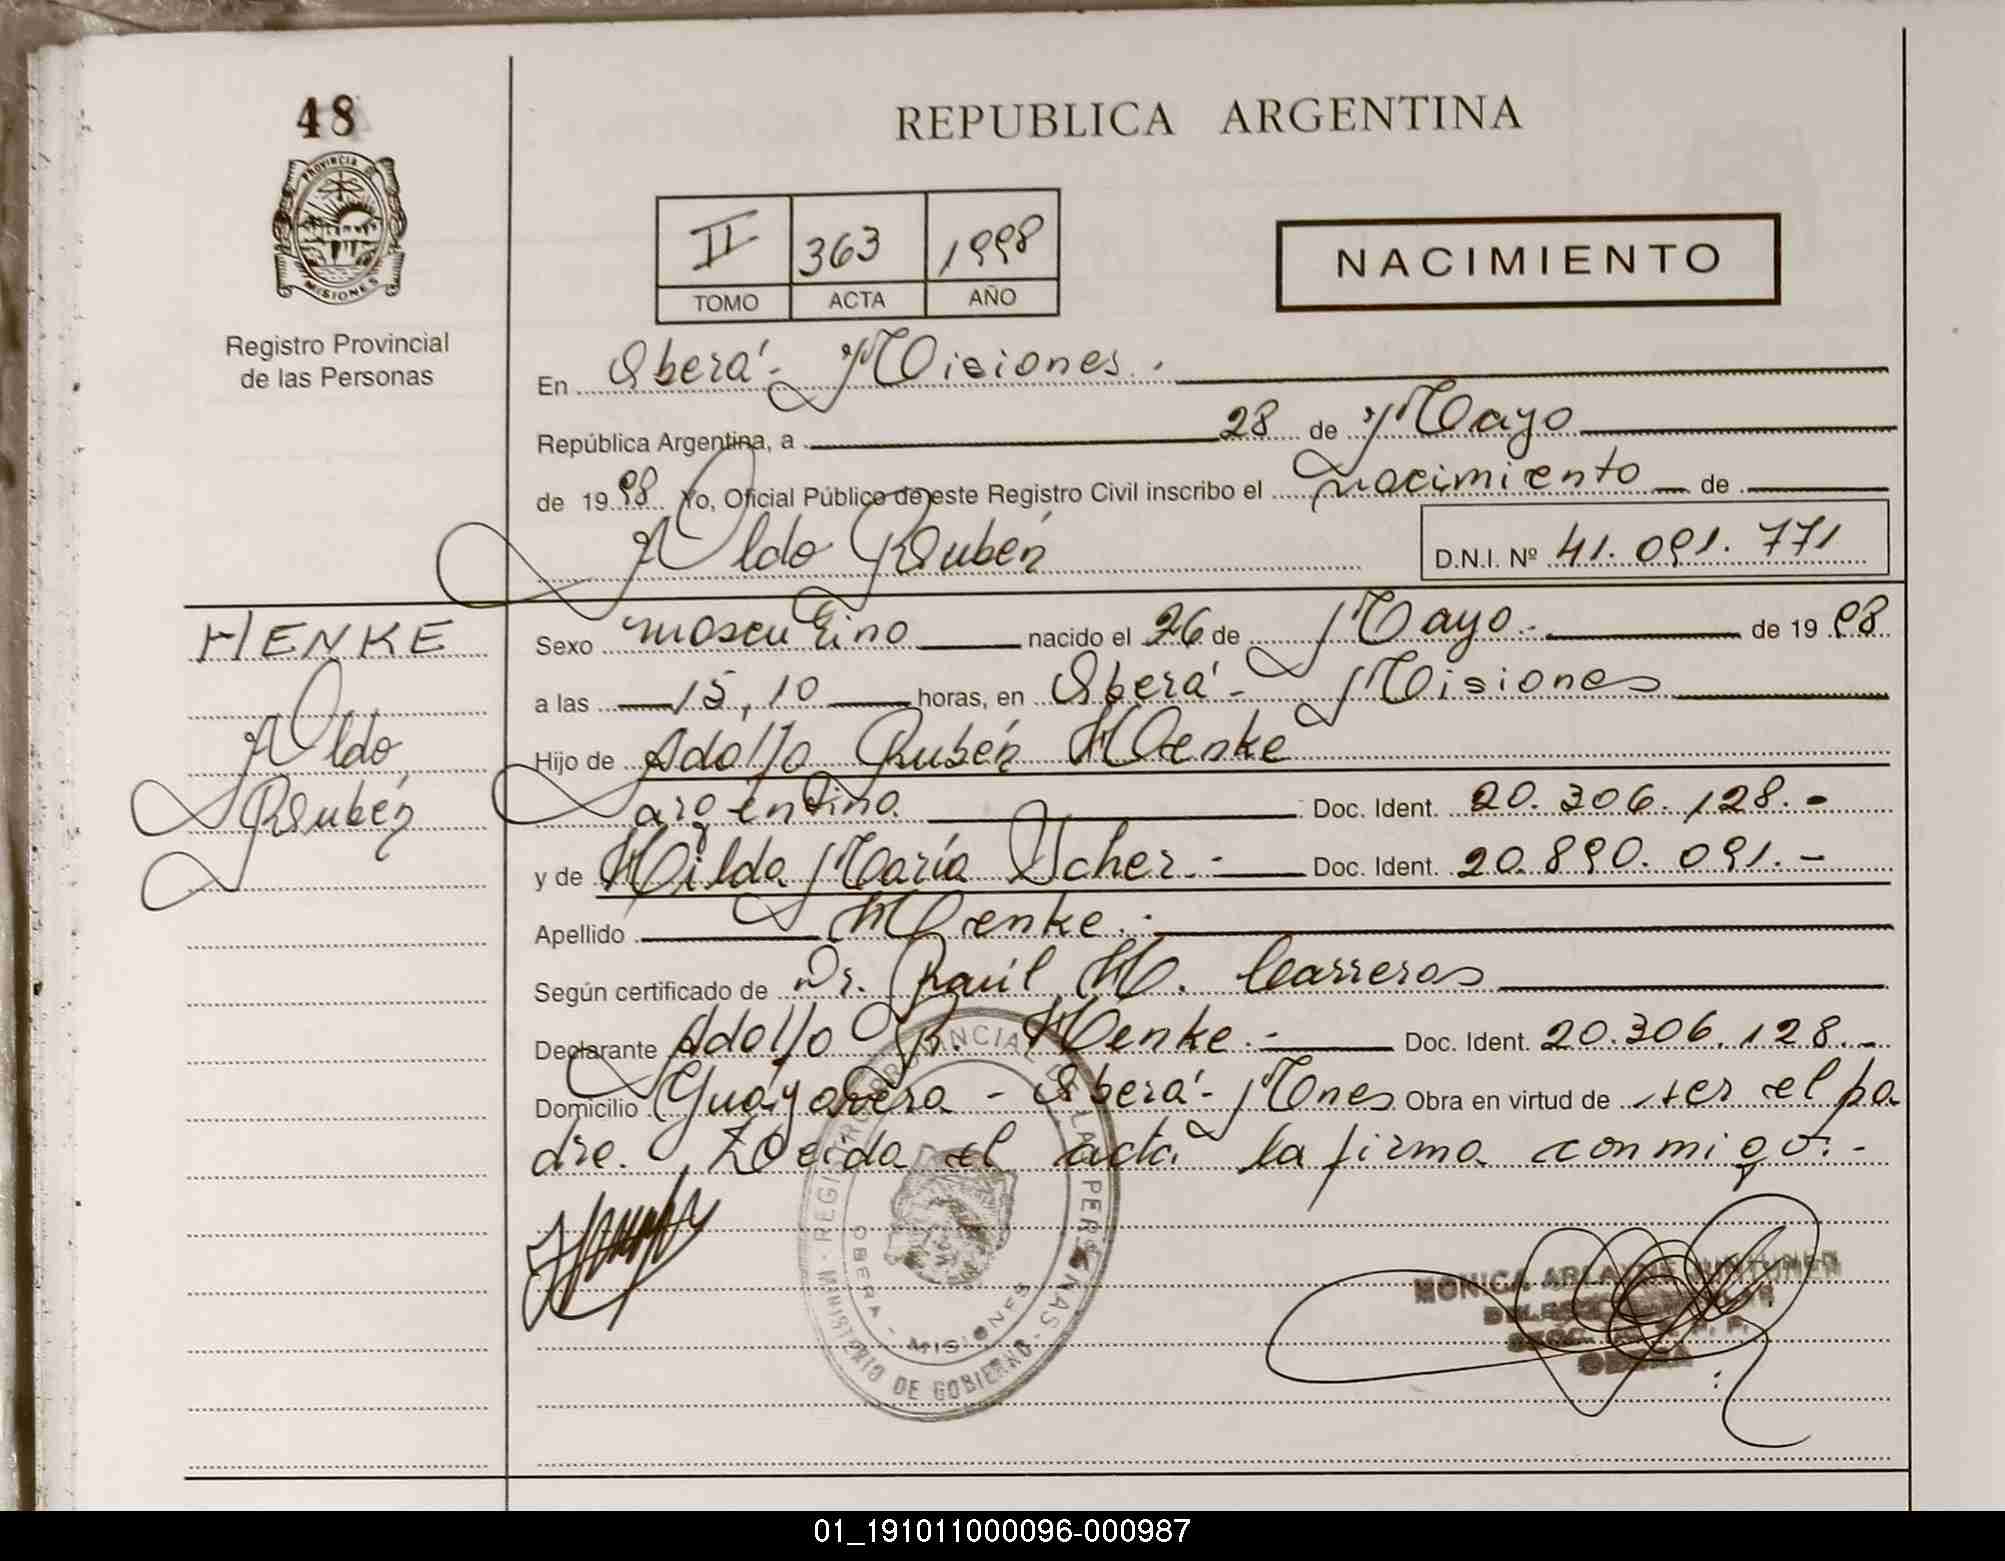 48
PROVINCIA
MISIONES
Registro Provincial
de las Personas
REPUBLICA ARGENTINA
II 363 1998
TOMO ACTA AÑO
NACIMIENTO
En Oberá - Misiones.
República Argentina, a 28 de Mayo
de 1998 Yo, Oficial Público de este Registro Civil inscribo el nacimiento de
Aldo Rubén
D.N.I. Nº 41.091.771
HENKE
Aldo
Rubén
Sexo masculino nacido el 26 de Mayo.- de 1998
a las 15,10 horas, en Oberá - Misiones
Hijo de Adolfo Rubén Henke
argentino. Doc. Ident. 20.306.128.-
y de Hilda María Scher.- Doc. Ident. 20.890.091.-
Apellido Henke.-
Según certificado de Dr. Raúl H. Carreras
Declarante Adolfo R. Henke.- Doc. Ident. 20.306.128.-
Domicilio Guayabera - Oberá - Mnes Obra en virtud de ser el pa
dre. Leida el acta la firma conmigo.-
REGISTRO PROVINCIAL DE LAS PERSONAS - MINISTERIO DE GOBIERNO
OBERA - MISIONES
MONICA
OBERA
01_191011000096-000987